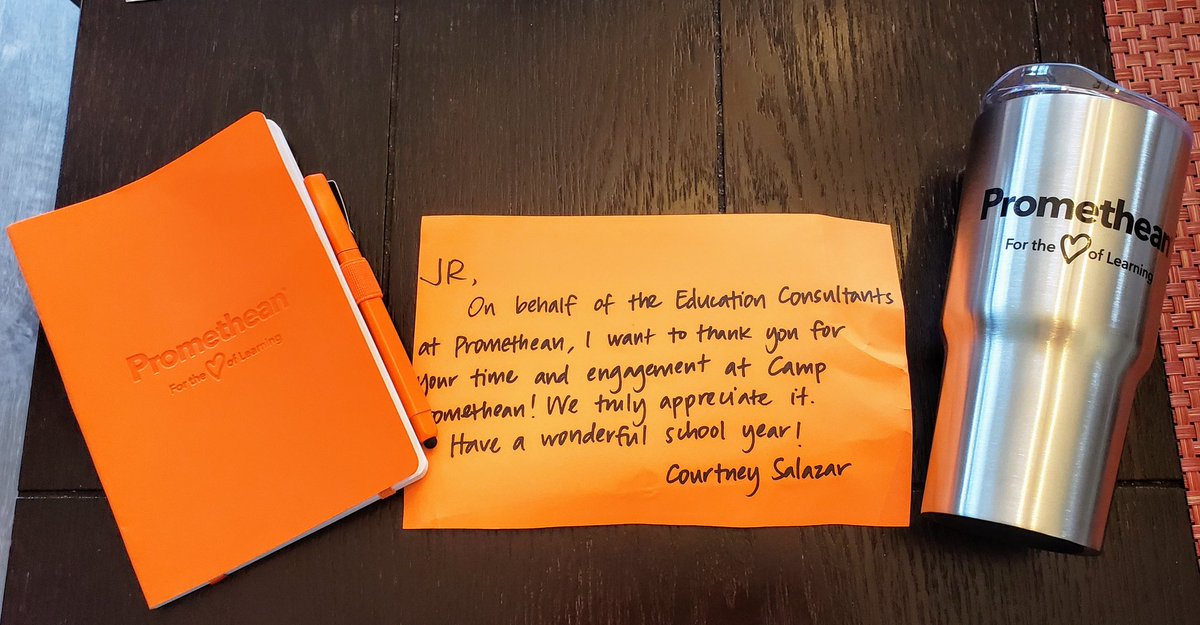 Promethean
For the of Learning
JR,
On behalf of the Education Consultants
at Promethean, I want to thank you for
your time and engagement at Camp
romethean! We truly appreciate it.
Have a wonderful school year!
Courtney Salazar
Promethean
For the of Learning